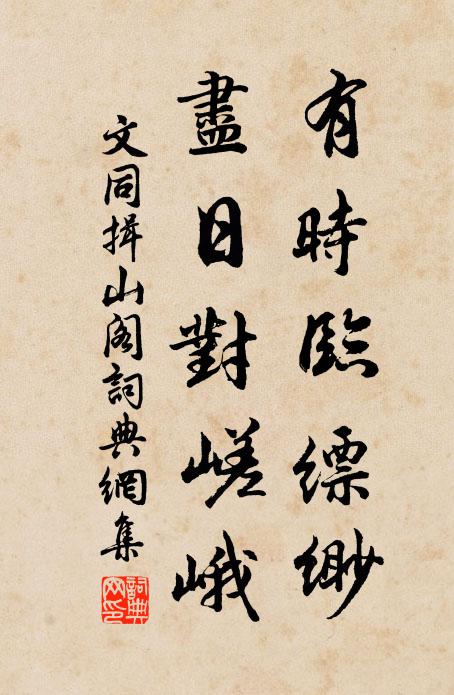 有時臨縹緲
盡日對嵯峨
文同揖山阁詞典網集
詞典网印